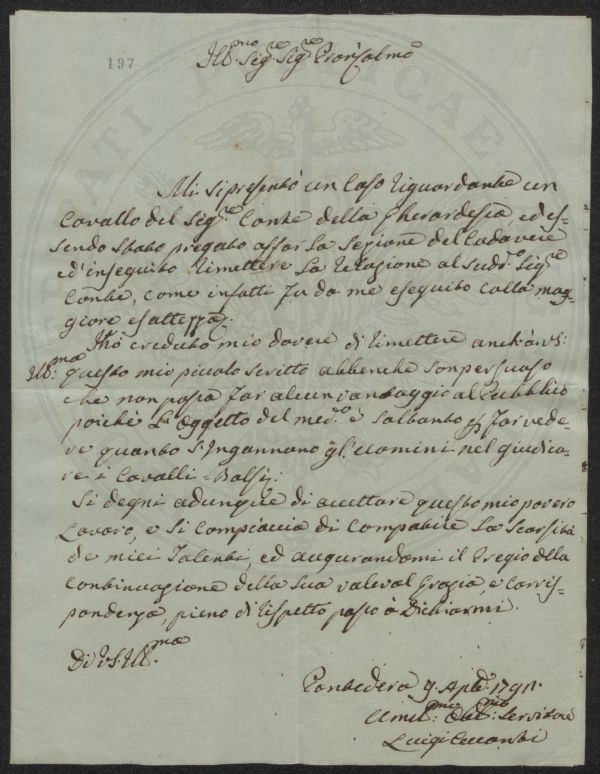 197
Ill.mo Sig.re Sig.re Pron Colmo
Mi si presentò un Caso riguardante un
Cavallo del Sig.re Conte della Gherardesca, ed es-
sendo stato pregato affar la Sezione del Cadavere
ed' inseguito rimettere la relazione al sud.o Sig.re
Conte, come infatti fu da me eseguito colla mag-
giore esattezza.
Hò creduto mio dovere di rimettere anch'à VS:
Ill:ma questo mio piccolo scritto abbenche son persuaso
che non possa far alcun vantaggio al Pubblico
poichè L'Oggetto del med.o è saltanto p far vede-
re quanto s'Ingannano gl'uomini nel giudica-
re i Cavalli-Bolsi;
Si degni adunque di accettare questo mio povero
Lavoro, e Si Compiaccia di Compatire La Scarsità
de miei Talenti, ed augurandomi il Pregio della
Continuazione della sua valeval Grazia, e Corris-
pondenza, pieno di rispetto passo à Dichiarmi.
Di VS. Ill.ma
Pontedera 9. Aple. 1791.
Umil:mo Obb:mo Servitore
Luigi